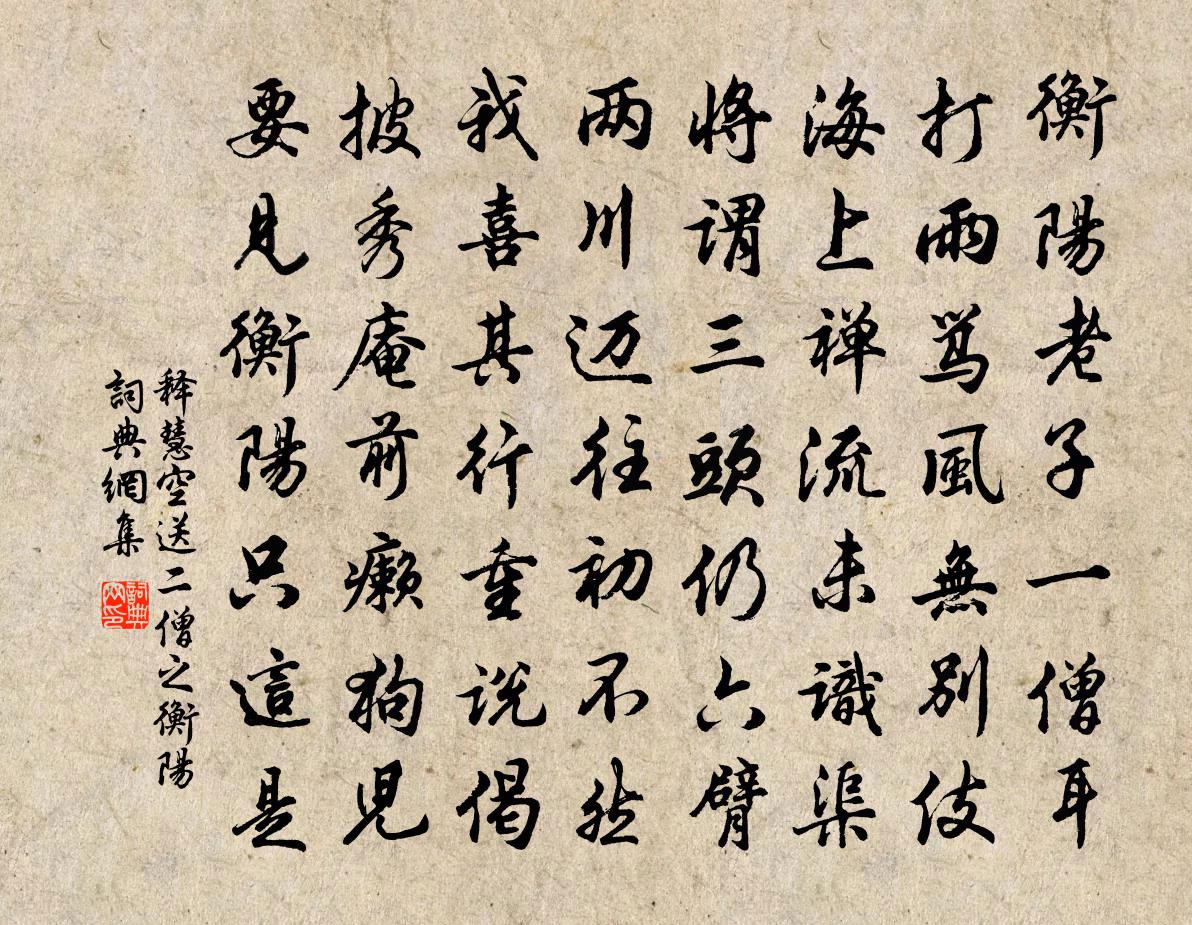 衡陽老子一僧耳
打雨罵風無別伎
海上禅流未識渠
將謂三頭仍六臂
两川迈往初不然
我喜其行重説偈
披秀庵前癩狗児
要見衡陽只這是
释慧空送二僧之衡陽
詞典網集
詞典网印